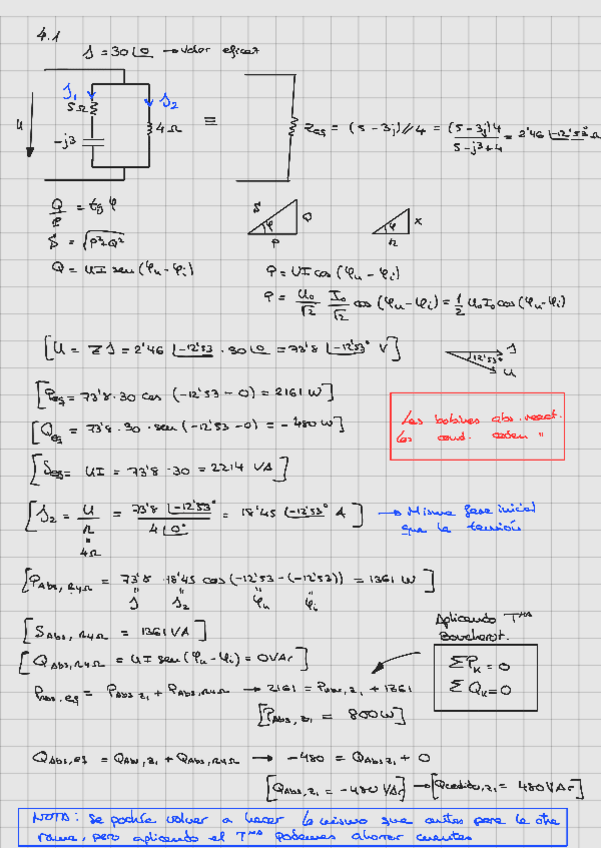 4.1
I = 30∠0 → valor eficaz
I₁ I₂
5Ω
U 4Ω ≡ Zeq = (5 - 3j)//4 = (5-3j)4 / 5-j3+4 = 2'46 ∠-12'53° Ω
-j3
Q/P = tg φ S Q P φ X R φ
S = √P²+Q²
Q = UI sen (φu - φi) P = UI cos (φu - φi)
P = U₀/√2 I₀/√2 cos (φu - φi) = 1/2 U₀I₀ cos (φu - φi)
[U = Z I = 2'46 ∠-12'53 · 30∠0 = 73'8 ∠-12'53° V] I 12'53° U
[Peq = 73'8 · 30 cos (-12'53 - 0) = 2161 W]
[Qeq = 73'8 · 30 · sen (-12'53 - 0) = -480 W]
Las bobinas abs. react.
los cond. ceden "
[Seq = UI = 73'8 · 30 = 2214 VA]
[I₂ = U/R = 73'8 ∠-12'53° / 4∠0° = 18'45 ∠-12'53° A] → Misma fase inicial
que la tensión
4Ω
[PAbs, R4Ω = 73'8 · 18'45 cos (-12'53 - (-12'53)) = 1361 W]
I I₂ φu φi
[SAbs, R4Ω = 1361 VA]
Aplicando Tma
Boucherot.
[QAbs, R4Ω = UI sen (φu - φi) = 0 VAr]
ΣPk = 0
ΣQk = 0
PAbs, eq = PAbs Z₁ + PAbs, R4Ω → 2161 = PAbs, Z₁ + 1361
[PAbs, Z₁ = 800 W]
QAbs, eq = QAbs, Z₁ + QAbs, R4Ω → -480 = QAbs Z₁ + 0
[QAbs, Z₁ = -480 VAr] → [Qcedida, Z₁ = 480 VAr]
NOTA: Se podría volver a hacer lo mismo que antes para la otra
rama, pero aplicando el Tma podemos ahorrar cuentas